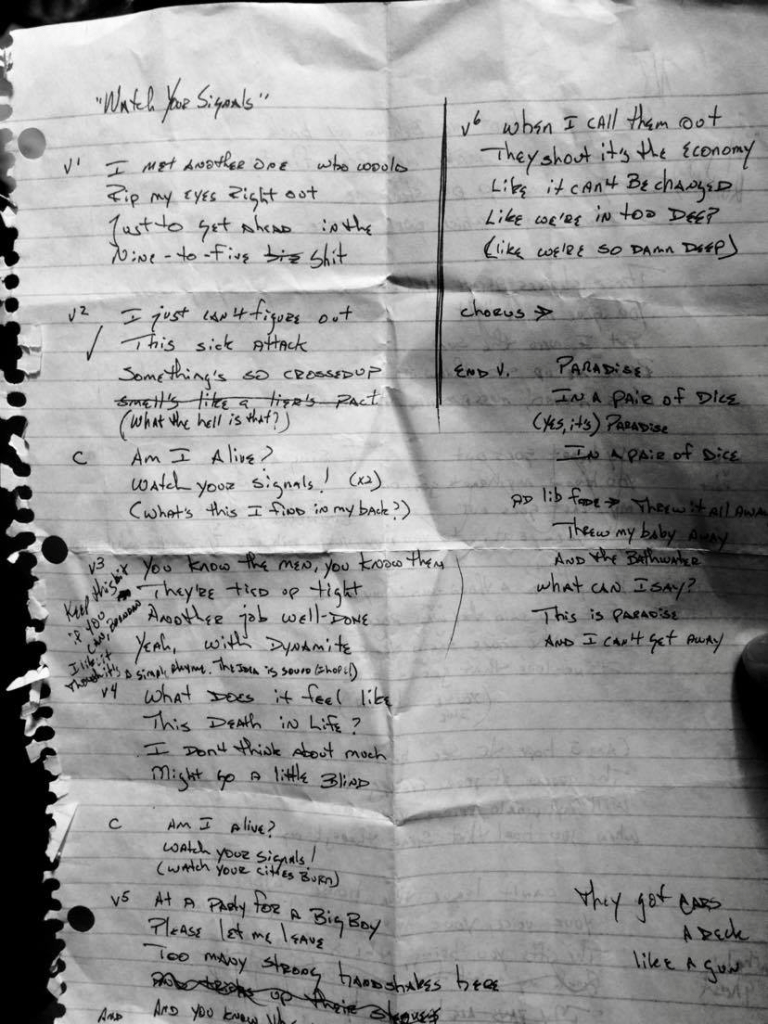 "Watch Your Signals"
v1 I met another one who would
Rip my eyes right out
Just to get ahead in the
Nine-to-Five big shit
v2 I just can't figure out
This sick attack
Something's so crossed up
smell's like a lier's pact
(What the hell is that?)
C Am I Alive?
Watch your signals! (x2)
(What's this I find in my back?)
v3 You know the men, you know them
They're tied up tight
Another job well-done
Yeah, with dynamite
Keep this bit
if you
can,
I like it
though it's a simple rhyme. The idea is sound (I hope!)
v4 What does it feel like
This Death in Life?
I don't think about much
Might go a little blind
C Am I alive?
Watch your signals!
(Watch your cities burn)
v5 At a party for a Big Boy
Please let me leave
Too many strong handshakes here
up their sleeves
And And you know
v6 When I call them out
They shout it's the economy
Like it can't be changed
Like we're in too deep
(Like we're so damn deep)
Chorus →
End v. Paradise
In a pair of dice
(Yes, it's) Paradise
In a pair of dice
Ad lib fade → Threw it all away
Threw my baby away
And the bathwater
What can I say?
This is paradise
And I can't get away
They got cars
a deck
like a gun